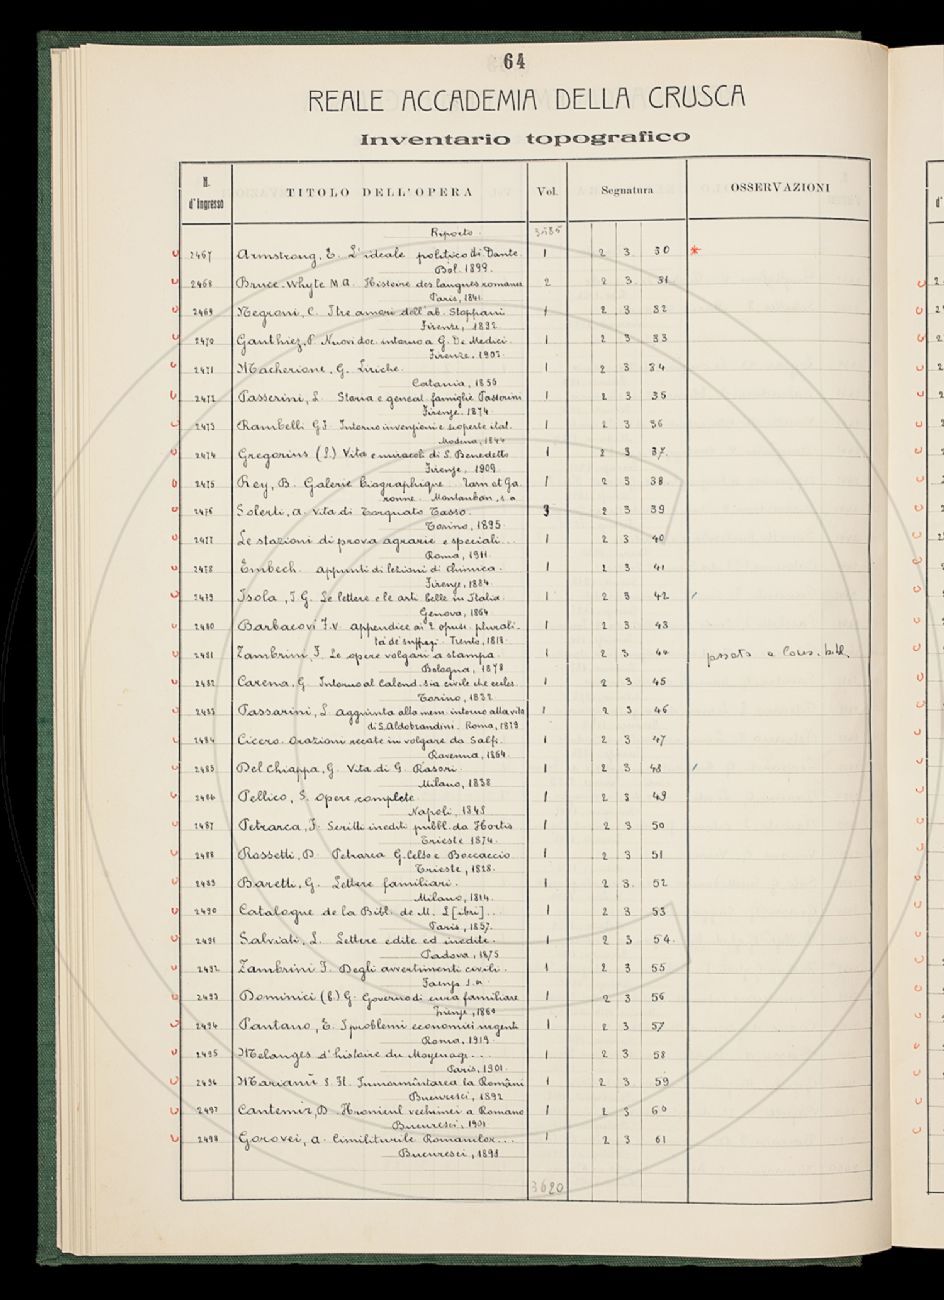 64
REALE ACCADEMIA DELLA CRUSCA
Inventario topografico
N. d'Ingresso TITOLO DELL'OPERA Vol. Segnatura OSSERVAZIONI
Riporto 3585
2467 Armstrong, E. L'ideale politico di Dante. 1 2 3 30 *
Bol. 1899.
2468 Bruce-Whyte M A. Histoire des langues romanes 2 2 3 31
Paris, 1841.
2469 Negroni, C. I tre amori dell'ab. Stoppani 1 2 3 32
Firenze, 1892
2470 Gauthiez, P. Nuovi doc. intorno a G. De Medici. 1 2 3 33
Firenze. 1903.
2471 Macherione, G. Liriche. 1 2 3 34
Catania, 1855
2472 Passerini, L. Storia e geneal. famiglie Passerini 1 2 3 35
Firenze. 1874.
2473 Rambelli G.F. Intorno invenzioni e scoperte ital. 1 2 3 36
Modena, 1844
2474 Gregorius (S.) Vita e miracoli di S. Benedetto 1 2 3 37.
Firenze, 1909.
2475 Rey, B. Galerie biographique.. Tarn et Ga 1 2 3 38
ronne. Montauban, s.a
2476 Solerti, A. Vita di Torquato Tasso. 3 2 3 39
Torino, 1895.
2477 Le stazioni di prova agrarie e speciali... 1 2 3 40
Roma, 1911.
2478 Embech. Appunti di lezioni di Chimica. 1 2 3 41
Firenze, 1884.
2479 Isola, I G. Le lettere e le arti belle in Italia. 1 2 3 42
Genova, 1864
2480 Barbacovi F.V. Appendice ai 2 opusc. plurali- 1 2 3 43
tà de' suffragi. Trento, 1818.
2481 Zambrini, F. Le opere volgari a stampa. 1 2 3 44 passato a Cons. bibl.
Bologna, 1878
2482 Carena, G. Intorno al Calend. sia civile che eccles. 1 2 3 45
Torino, 1832
2483 Passarini, L. Aggiunta alla mem. intorno alla vita 1 2 3 46
di S. Aldobrandini. Roma, 1879
2484 Cicero. Orazioni recate in volgare da Salfi. 1 2 3 47
Ravenna, 1864.
2485 Del Chiappa, G. Vita di G. Rasori 1 2 3 48
Milano, 1838
2486 Pellico, S. Opere complete 1 2 3 49
Napoli, 1848
2487 Petrarca, F. Scritti inediti pubbl. da Hortis 1 2 3 50
Trieste 1874.
2488 Rossetti, D. Petrarca G. Celso e Boccaccio 1 2 3 51
Trieste, 1828.
2489 Baretti, G. Lettere familiari. 1 2 3. 52
Milano, 1814.
2490 Catalogue de la Bibl. de M. L[ibri]... 1 2 3 53
Paris, 1857.
2491 Salviati, L. Lettere edite ed inedite. 1 2 3 54.
Padova, 1875
2492 Zambrini F. Degli avvertimenti civili. 1 2 3 55
Faenza s.a.
2493 Dominici (B.) G. Governo di cura familiare 1 2 3 56
Firenze, 1860
2494 Pantano, E. I problemi economici urgenti 1 2 3 57
Roma, 1919.
2495 Melanges d'histoire du Moyenage... 1 2 3 58
Paris, 1901.
2496 Marianŭ S. Fl. Inmormîntarea la Români 1 2 3 59
Bucuresci, 1892
2497 Cantemir, D. Hronicul vechimei a Romano 1 2 3 60
Bucuresci, 1901
2498 Gorovei, A. Cimiliturile Romanilor... 1 2 3 61
Bucuresci, 1898
3620